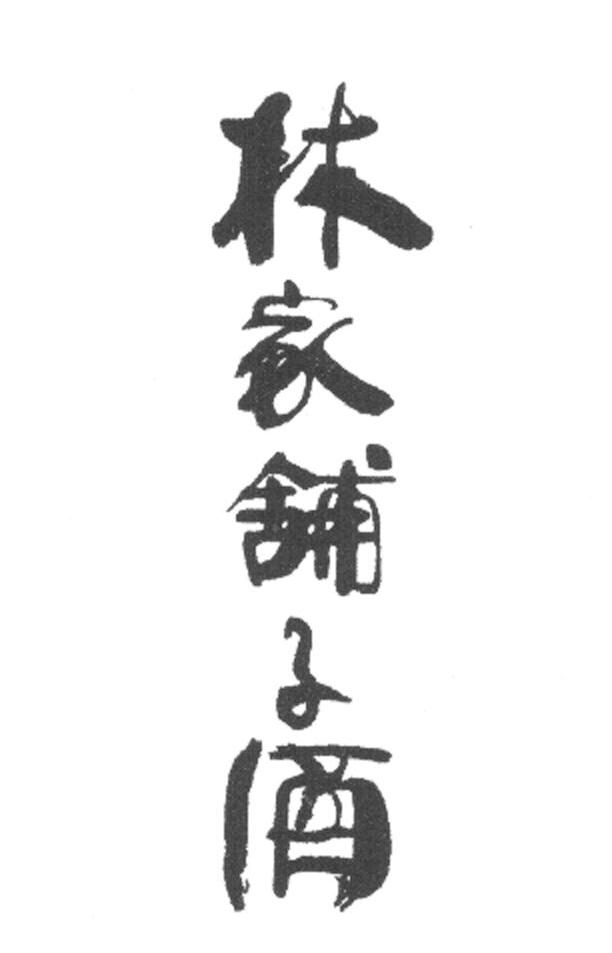 林家舖子酒